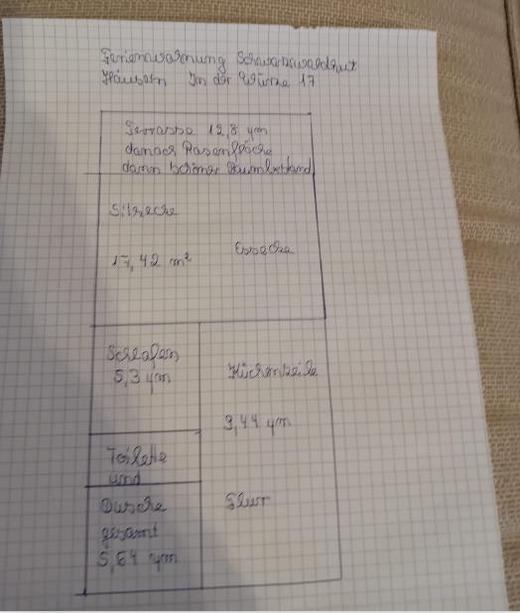 Ferienwohnung Schwarzwaldgut
Häusern In der Würze 17
Terrasse 12,8 qm
danach Rasenfläche
dann schöner Baumbestand
Sitzecke
Essecke
17,42 m²
Schlafen
5,3 qm
Küchenzeile
3,44 qm
Toilette
und
Dusche
gesamt
5,64 qm
Flur